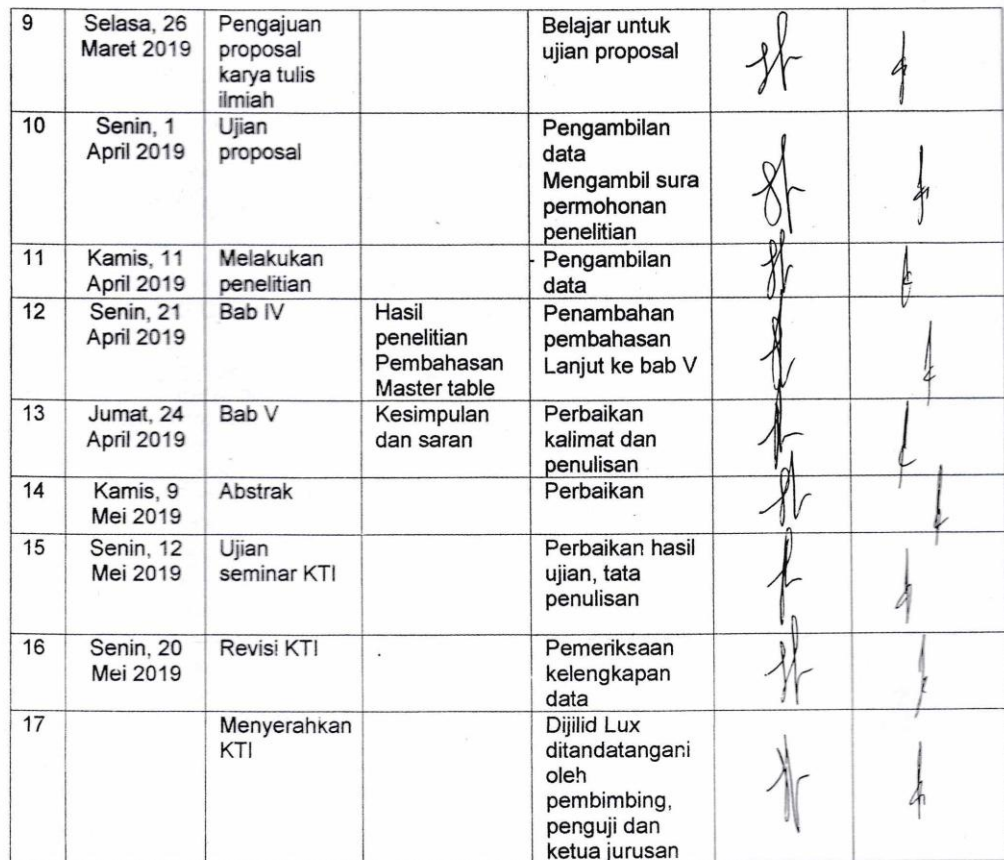 9
Selasa, 26
Maret 2019
Pengajuan
proposal
karya tulis
ilmiah
Belajar untuk
ujian proposal
10
Senin, 1
April 2019
Ujian
proposal
Pengambilan
data
Mengambil sura
permohonan
penelitian
11
Kamis, 11
April 2019
Melakukan
penelitian
Pengambilan
data
12
Senin, 21
April 2019
Bab IV
Hasil
penelitian
Pembahasan
Master table
Penambahan
pembahasan
Lanjut ke bab V
13
Jumat, 24
April 2019
Bab V
Kesimpulan
dan saran
Perbaikan
kalimat dan
penulisan
14
Kamis, 9
Mei 2019
Abstrak
Perbaikan
15
Senin, 12
Mei 2019
Ujian
seminar KTI
Perbaikan hasil
ujian, tata
penulisan
16
Senin, 20
Mei 2019
Revisi KTI
Pemeriksaan
kelengkapan
data
17
Menyerahkan
KTI
Dijilid Lux
ditandatangani
oleh
pembimbing,
penguji dan
ketua jurusan